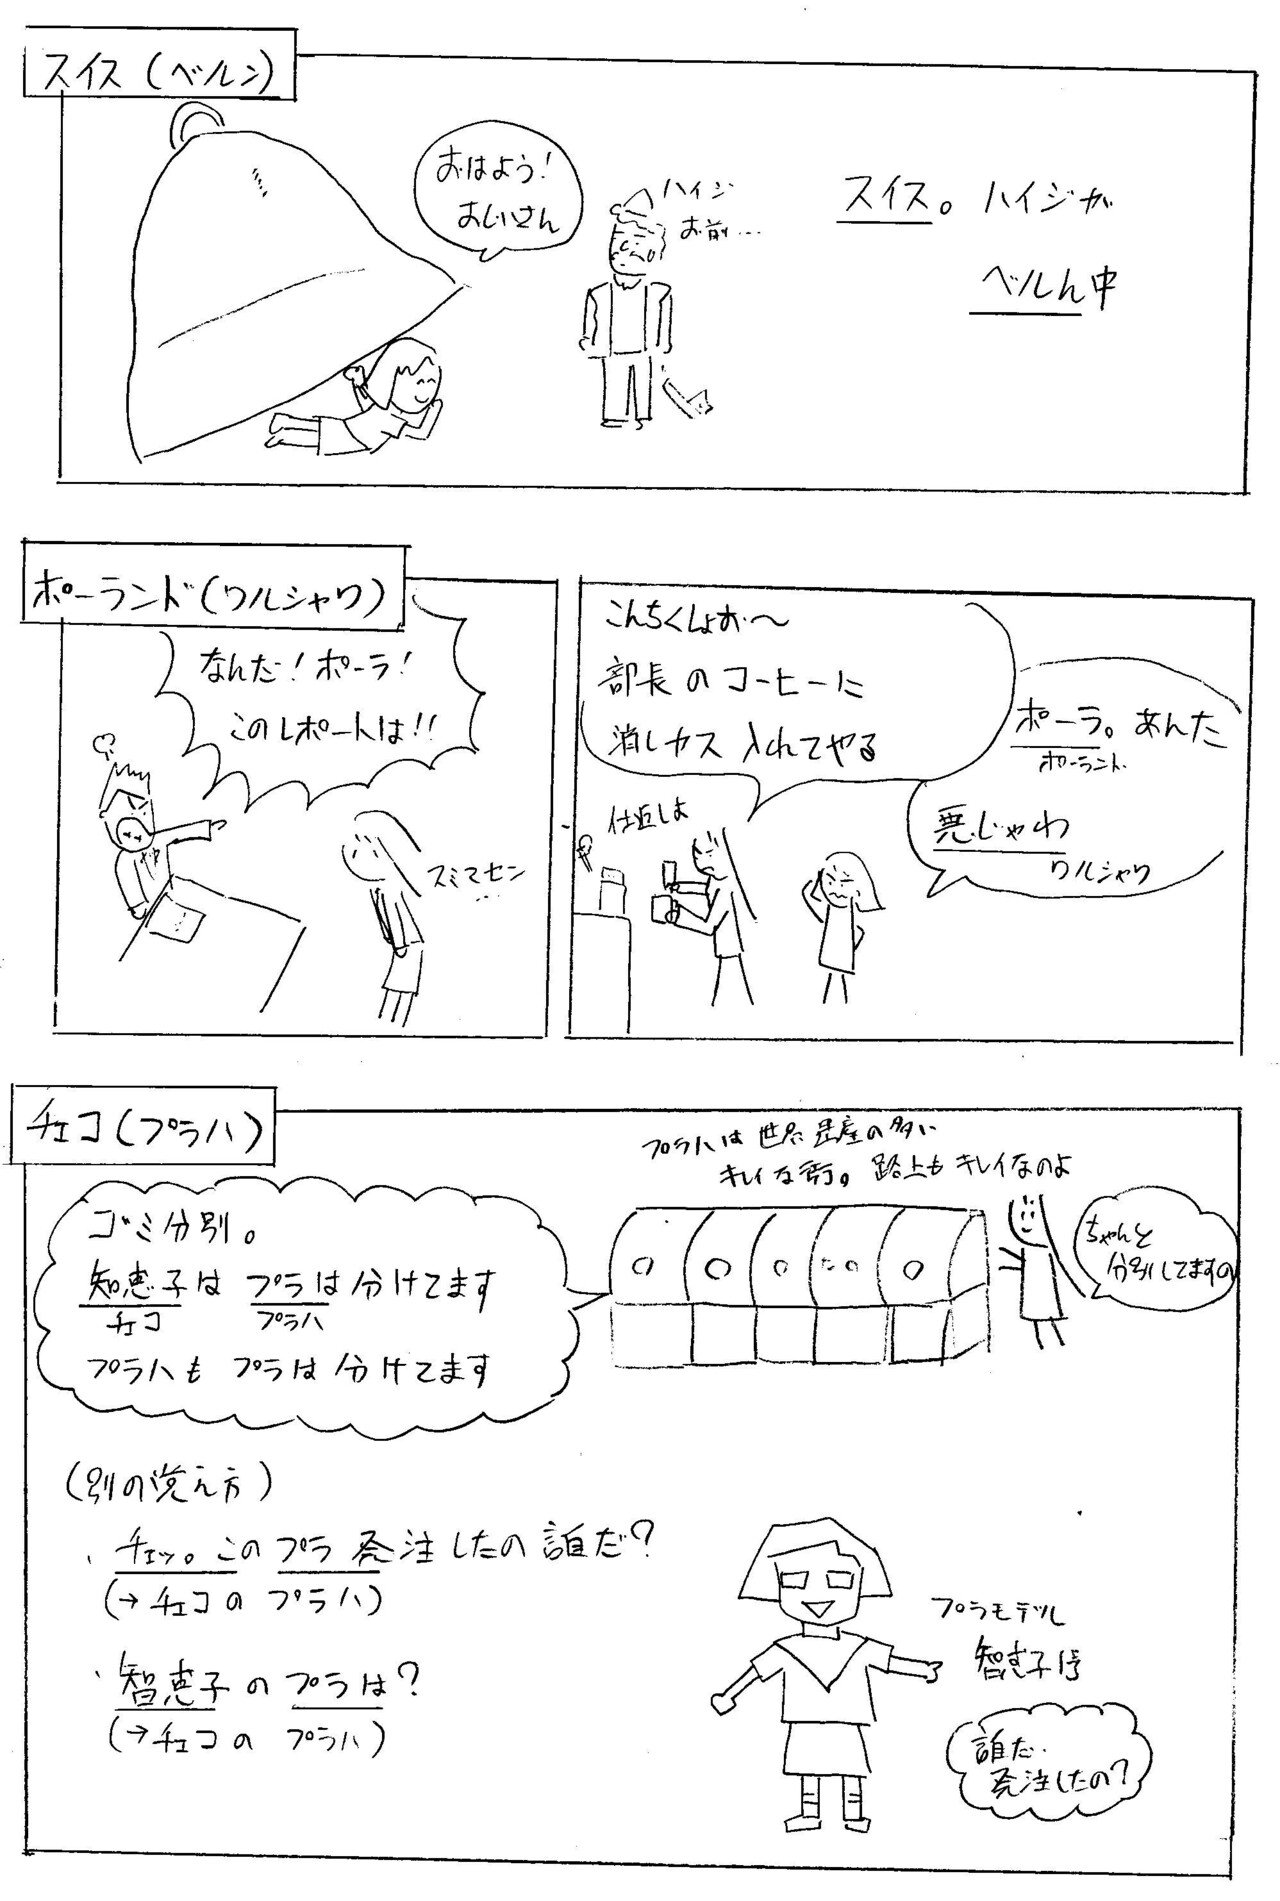 スイス(ベルン)
おはよう!
おじいさん
ハイジ
お前…
スイス。ハイジが
ベルん中
ポーランド(ワルシャワ)
なんだ!ポーラ!
このレポートは!!
スミマセン
…
こんちくしょお〜
部長のコーヒーに
消しカス入れてやる
仕返しよ
ポーラ。あんた
ポーランド
悪じゃわ
ワルシャワ
チェコ(プラハ)
プラハは世界遺産の多い
キレイな街。路上もキレイなのよ
ゴミ分別。
知恵子はプラは分けてます
チェコ プラハ
プラハもプラは分けてます
ちゃんと
分別してますの
(別の覚え方)
・チェッ。このプラ発注したの誰だ?
(→チェコのプラハ)
・智恵子のプラは?
(→チェコのプラハ)
プラモデル
智恵子
誰だ
発注したの?